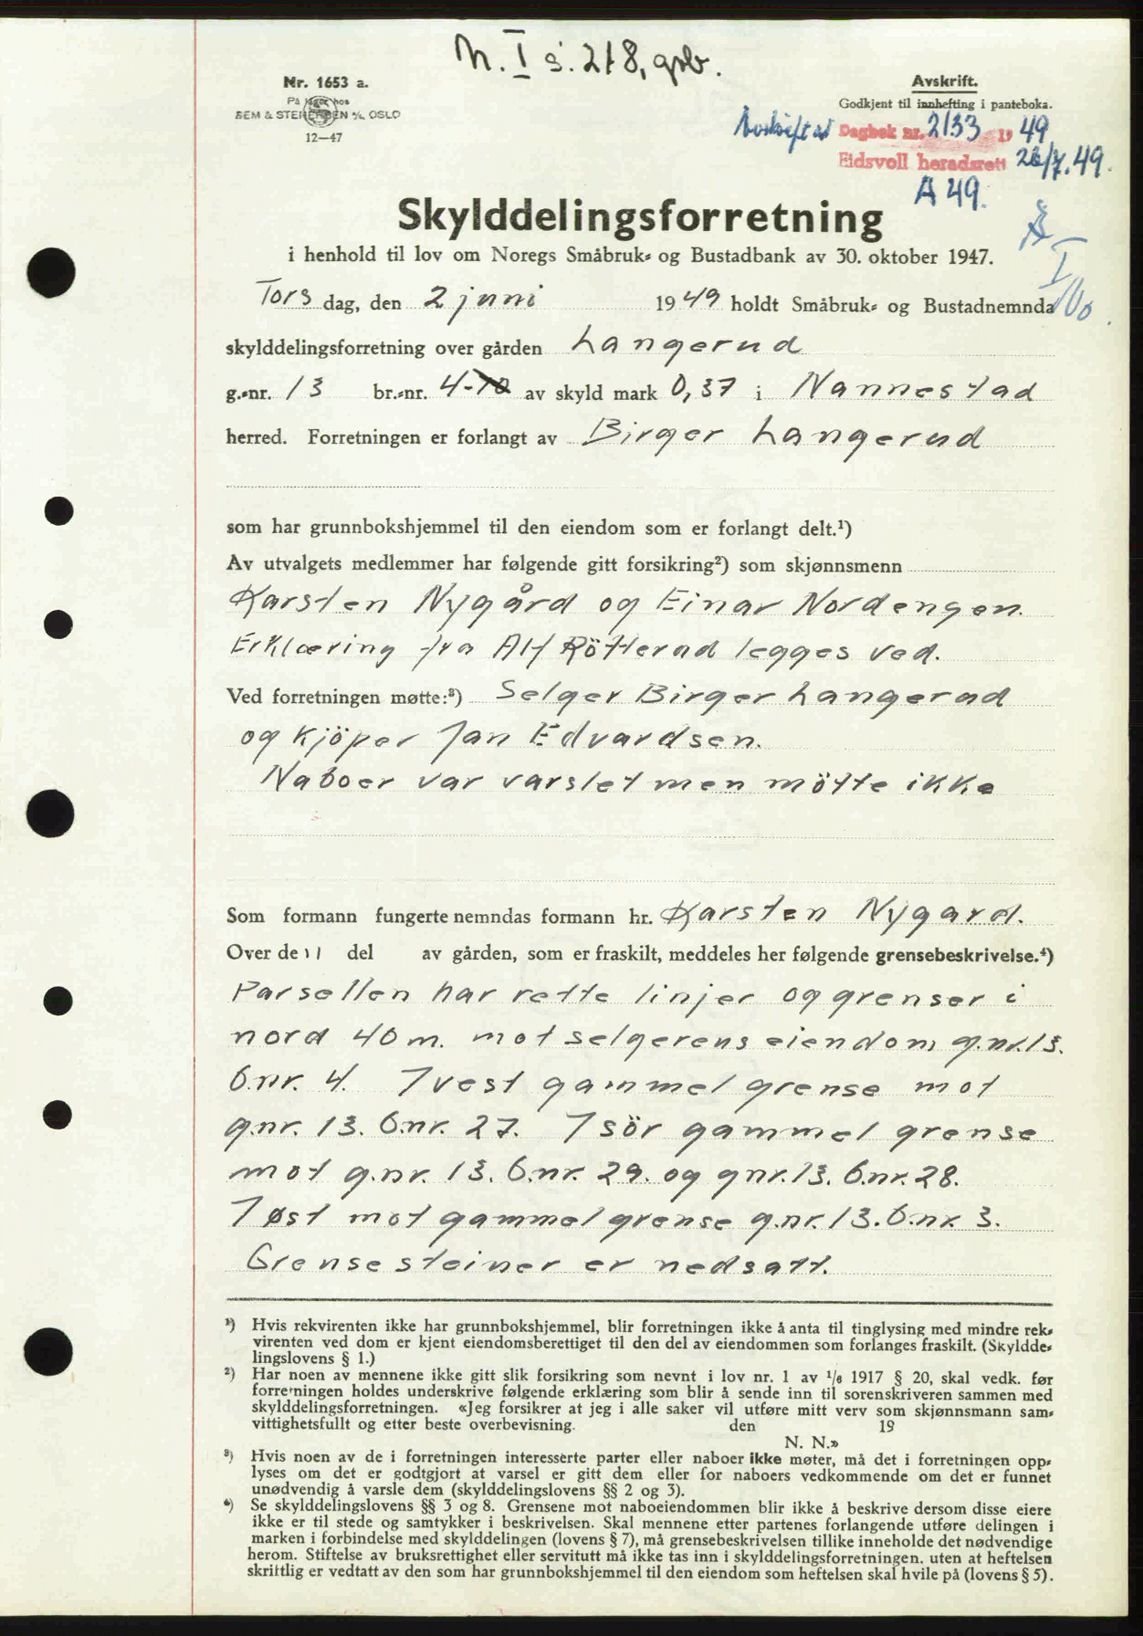 N. I s. 218, grb.
Nr. 1653 a.
På lager hos
SEM & STENERSEN A/S, OSLO
12—47
Avskrift.
Godkjent til innhefting i panteboka.
Dagbok nr. 2133 19 49
Eidsvoll heradsrett 26/7. 49.
A 49.
Skylddelingsforretning
i henhold til lov om Noregs Småbruk- og Bustadbank av 30. oktober 1947.
Tors dag, den 2 juni 1949 holdt Småbruk- og Bustadnemnda
skylddelingsforretning over gården Langerud
g.-nr. 13 br.-nr. 4-10 av skyld mark 0,37 i Nannestad
herred. Forretningen er forlangt av Birger Langerud
som har grunnbokshjemmel til den eiendom som er forlangt delt.¹)
Av utvalgets medlemmer har følgende gitt forsikring²) som skjønnsmenn
Karsten Nygård og Einar Nordengen.
Erklæring fra Alf Rötterud legges ved.
Ved forretningen møtte:³) Selger Birger Langerud
og Kjöper Jan Edvardsen.
Naboer var varslet men mötte ikke
Som formann fungerte nemndas formann hr. Karsten Nygård.
Over de 11 del av gården, som er fraskilt, meddeles her følgende grensebeskrivelse.⁴)
Parsellen har rette linjer og grenser i
nord 40 m. mot selgerens eiendom, g.nr. 13.
b.nr. 4. I vest gammel grense mot
g.nr. 13. b.nr. 27. I sör gammel grense
mot g.nr. 13. b.nr. 29. og g.nr. 13. b.nr. 28.
I øst mot gammel grense g.nr. 13. b.nr. 3.
Grensesteiner er nedsatt.
¹) Hvis rekvirenten ikke har grunnbokshjemmel, blir forretningen ikke å anta til tinglysing med mindre rek-
virenten ved dom er kjent eiendomsberettiget til den del av eiendommen som forlanges fraskilt. (Skyldde-
lingslovens § 1.)
²) Har noen av mennene ikke gitt slik forsikring som nevnt i lov nr. 1 av 1/6 1917 § 20, skal vedk. før
forretningen holdes underskrive følgende erklæring som blir å sende inn til sorenskriveren sammen med
skylddelingsforretningen. «Jeg forsikrer at jeg i alle saker vil utføre mitt verv som skjønnsmann sam-
vittighetsfullt og etter beste overbevisning. den 19
N. N.»
³) Hvis noen av de i forretningen interesserte parter eller naboer ikke møter, må det i forretningen opp-
lyses om det er godtgjort at varsel er gitt dem eller for naboers vedkommende om det er funnet
unødvendig å varsle dem (skylddelingslovens §§ 2 og 3).
⁴) Se skylddelingslovens §§ 3 og 8. Grensene mot naboeiendommen blir ikke å beskrive dersom disse eiere
ikke er til stede og samtykker i beskrivelsen. Skal mennene etter partenes forlangende utføre delingen i
marken i forbindelse med skylddelingen (lovens § 7), må grensebeskrivelsen tillike inneholde det nødvendige
herom. Stiftelse av bruksrettighet eller servitutt må ikke tas inn i skylddelingsforretningen, uten at heftelsen
skriftlig er vedtatt av den som har grunnbokshjemmel til den eiendom som heftelsen skal hvile på (lovens § 5).